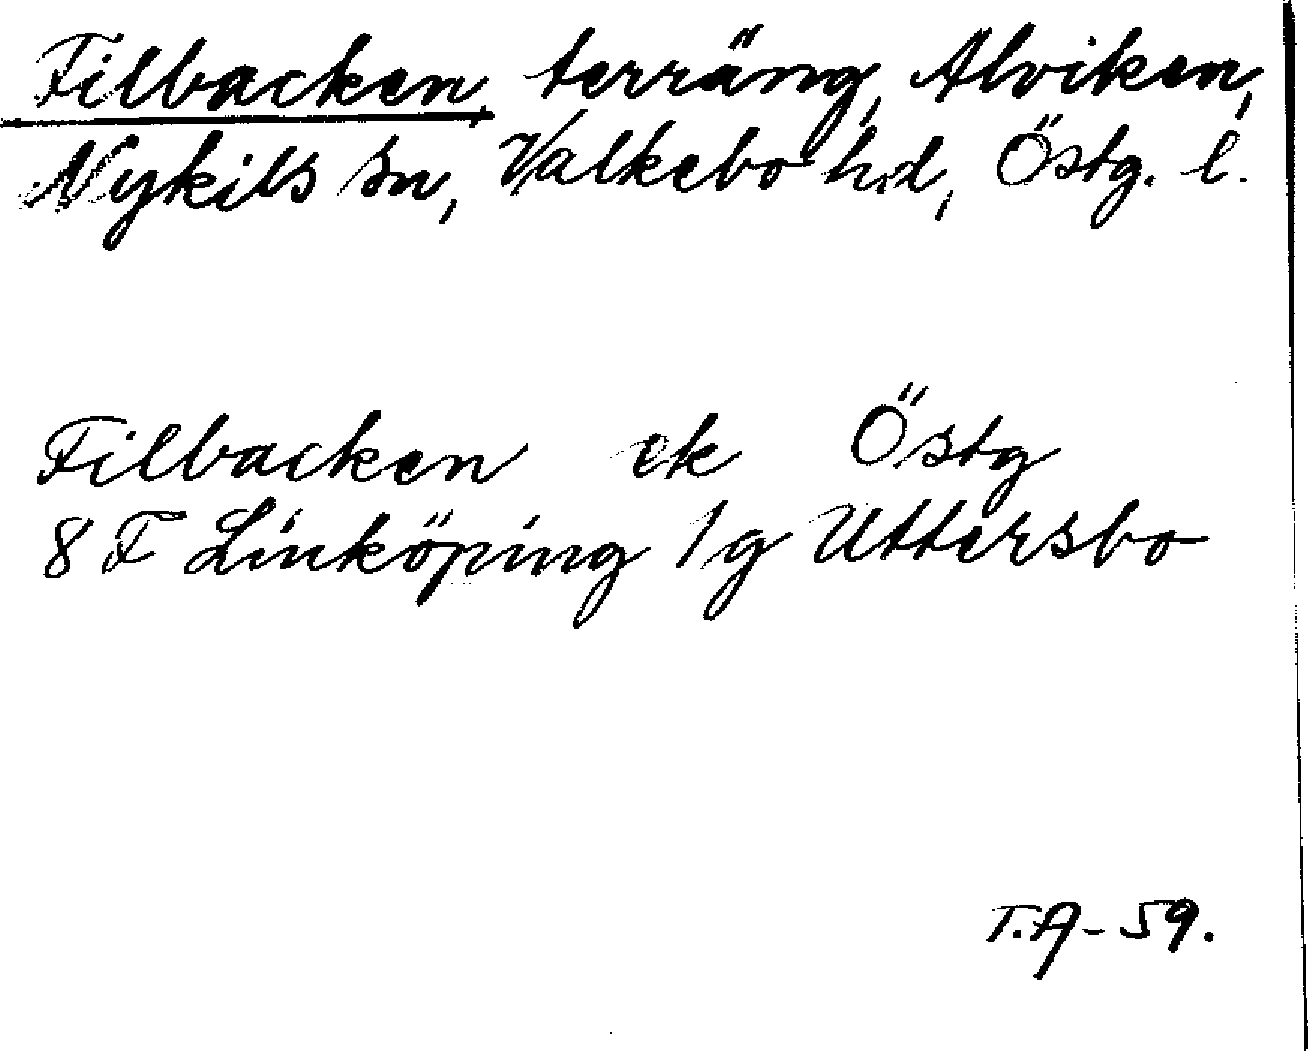 Filbacken, terräng, Alviken,
Nykils sn, Valkebo hd, Östg. l.
Filbacken ek Östg
8 F Linköping 1g Uttersbo
T.A-59.